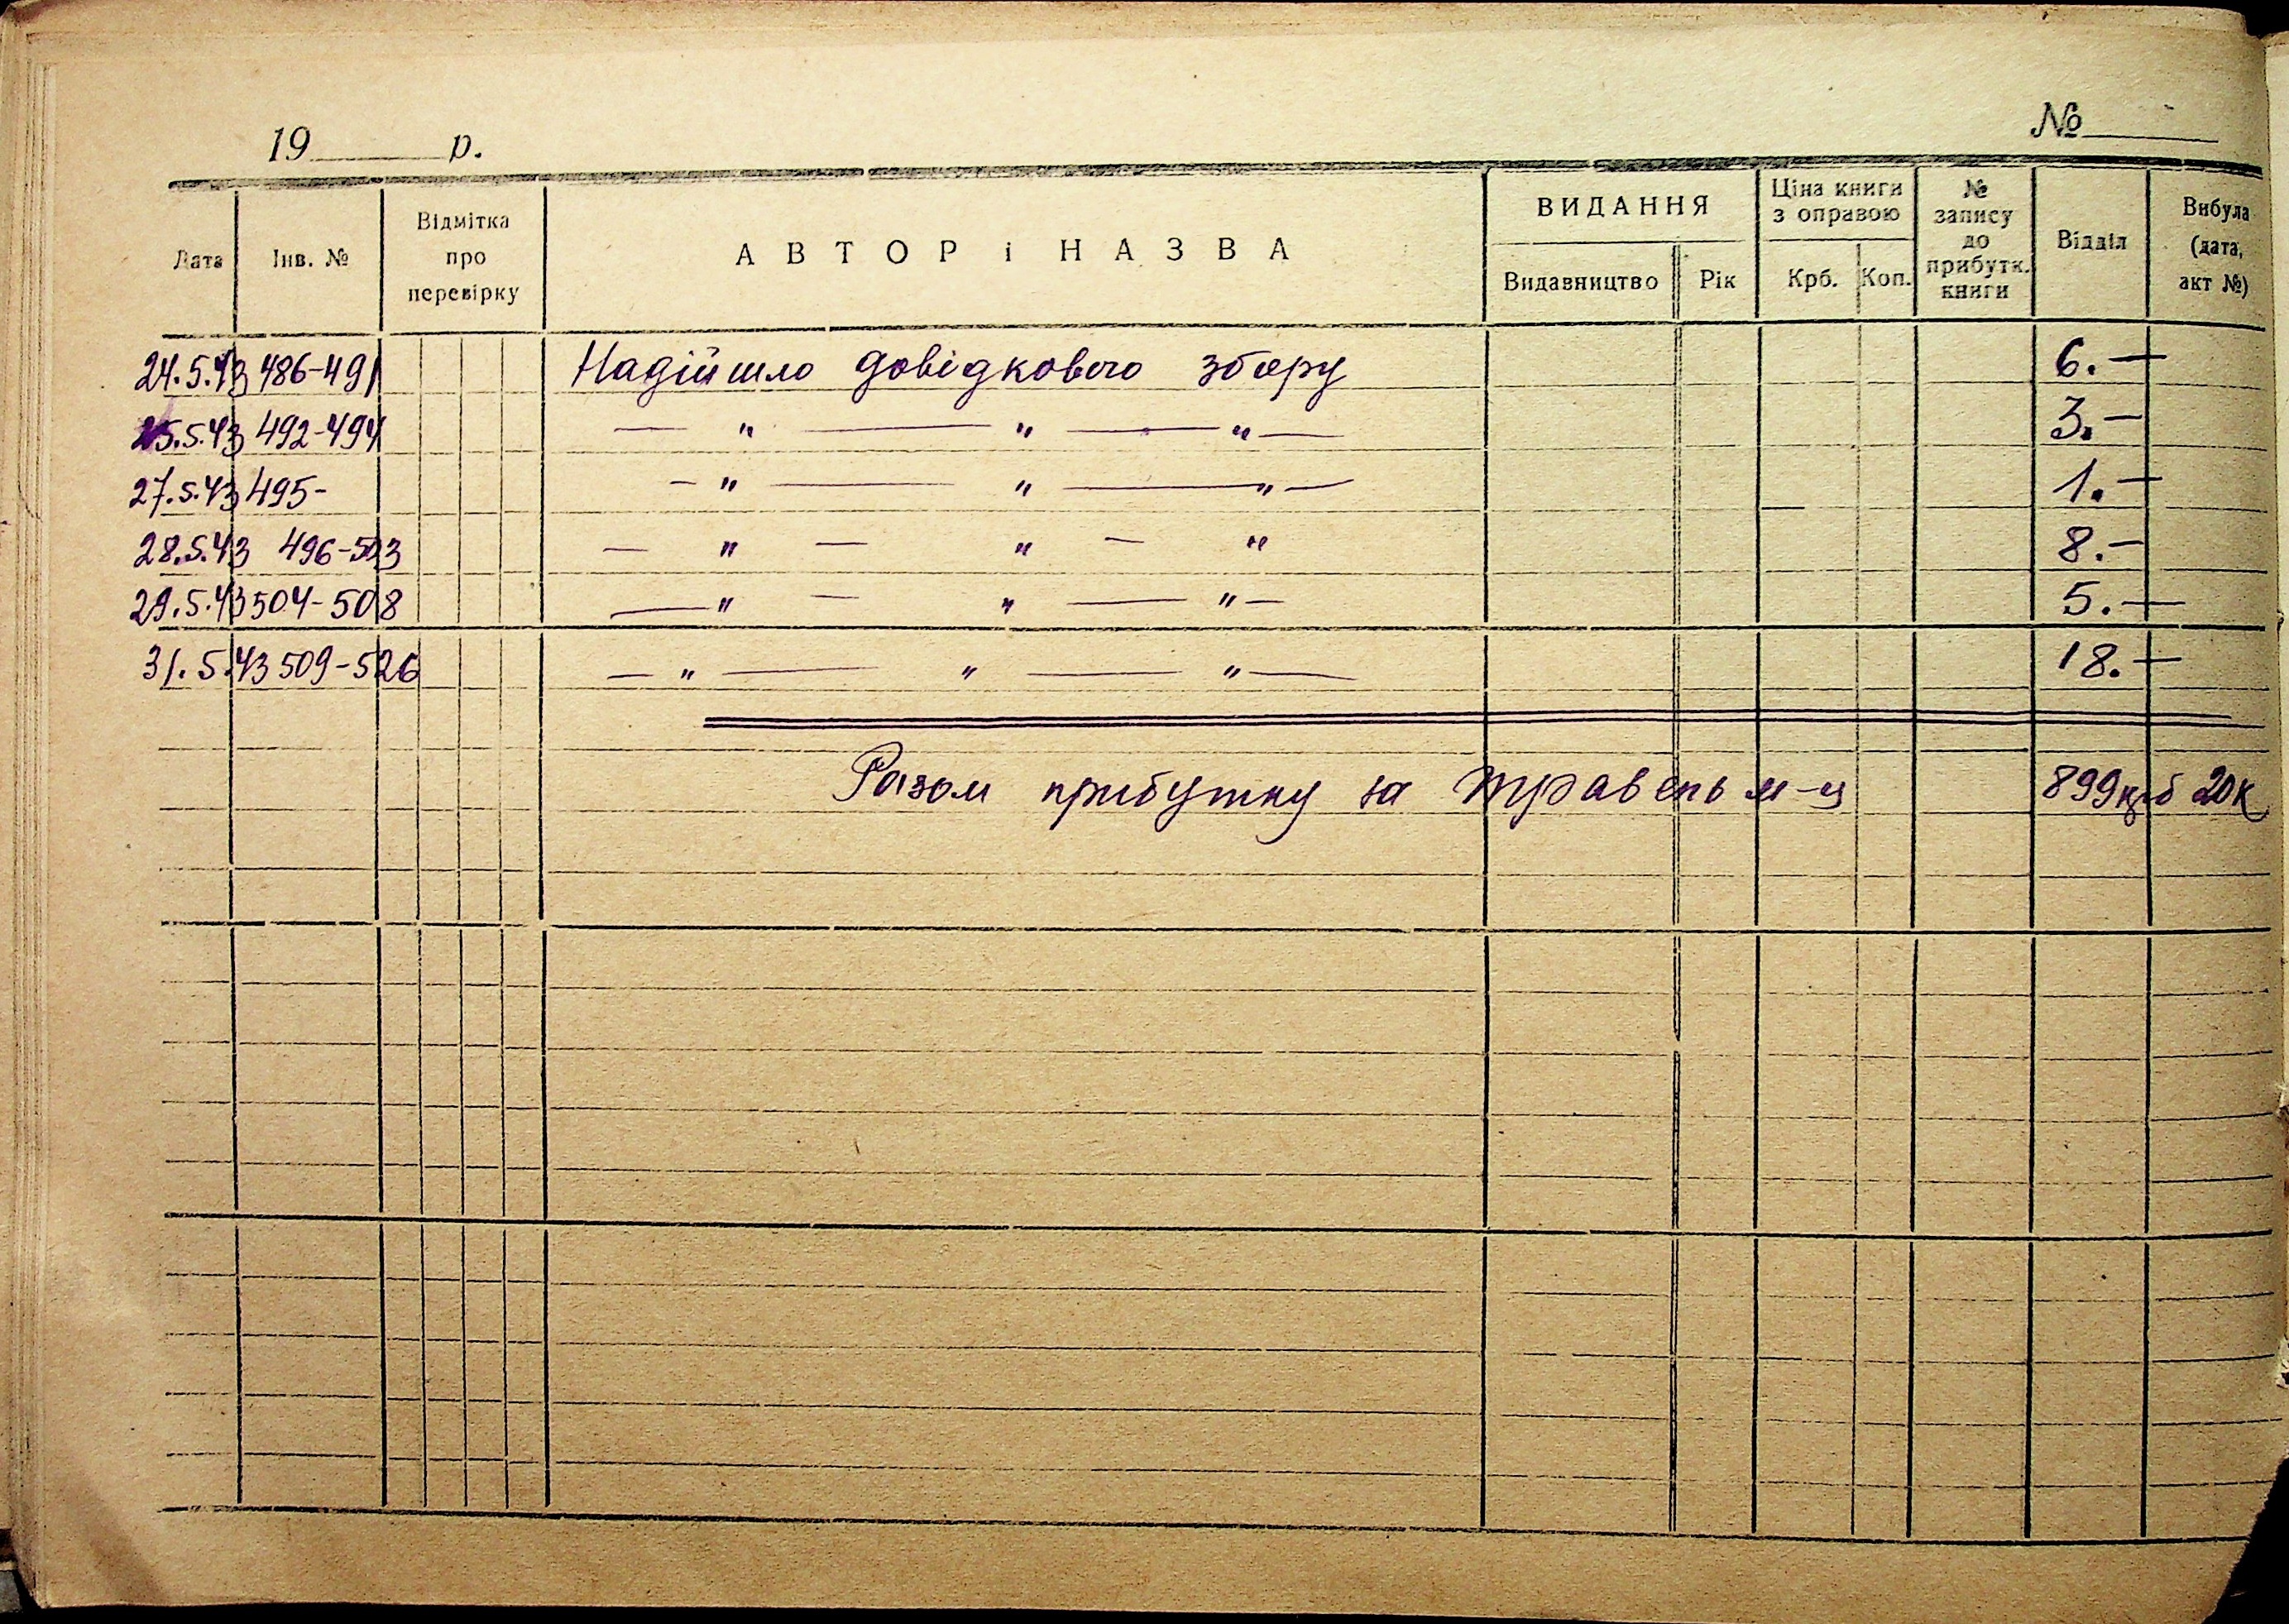 19 р. №
Дата Інв. № Відмітка про перевірку АВТОР і НАЗВА ВИДАННЯ Видавництво Рік Ціна книги з оправою Крб. Коп. № запису до прибутк. книги Відділ Вибула (дата, акт №)
24.5.43 486-491 Надійшло довідкового збору 6.—
25.5.43 492-494 — " — " — " — 3.—
27.5.43 495- — " — " — " — 1.—
28.5.43 496-503 — " — " — " 8.—
29.5.43 504-508 — " — " — " — 5.—
31.5.43 509-526 — " — " — " — 18.—
Разом прибутку за травень м-ц 899 крб 20 к